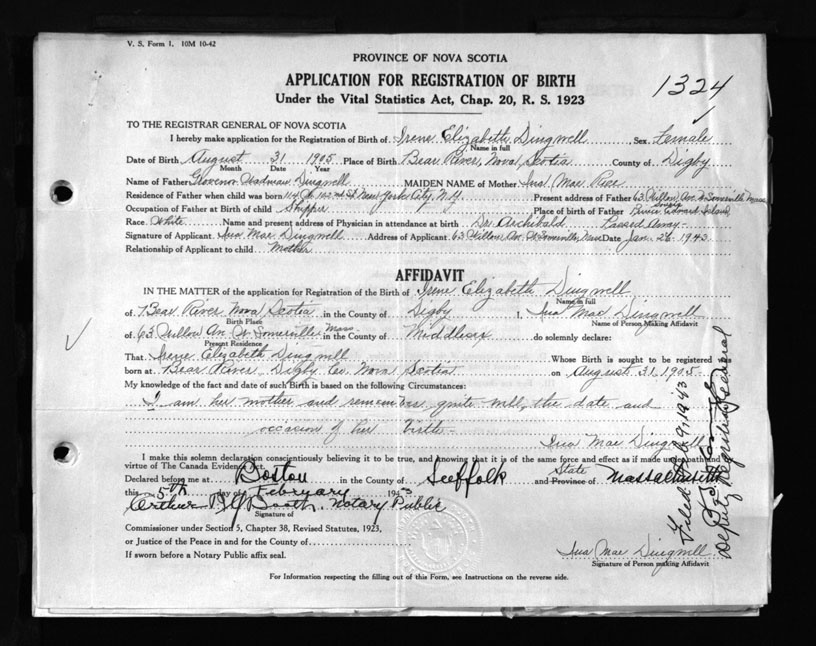 V. S. Form 1. 10M 10-42
PROVINCE OF NOVA SCOTIA
APPLICATION FOR REGISTRATION OF BIRTH
1324
Under the Vital Statistics Act, Chap. 20, R. S. 1923
TO THE REGISTRAR GENERAL OF NOVA SCOTIA
I hereby make application for the Registration of Birth of Irene Elizabeth Dingwell Sex Female
Name in full
Date of Birth August 31 1905 Place of Birth Bear River, Nova Scotia County of Digby
Month Date Year
Name of Father Dingwell MAIDEN NAME of Mother Ina Mae Rice
Residence of Father when child was born New York City, N.Y. Present address of Father 63 Willow Ave. W. Somerville Mass
Occupation of Father at Birth of child Skipper Place of birth of Father Prince Edward Island
Race White Name and present address of Physician in attendance at birth Dr. Archibald Passed Away
Signature of Applicant Ina Mae Dingwell Address of Applicant 63 Willow Av. W. Somerville, Mass Date Jan. 26 1943
Relationship of Applicant to child Mother
AFFIDAVIT
IN THE MATTER of the application for Registration of the Birth of Irene Elizabeth Dingwell
Name in full
of Bear River Nova Scotia in the County of Digby I, Ina Mae Dingwell
Birth Place Name of Person Making Affidavit
of 63 Willow Av W. Somerville Mass in the County of Middlesex do solemnly declare:
Present Residence
That Irene Elizabeth Dingwell Whose Birth is sought to be registered was
born at Bear River Digby Co. Nova Scotia on August 31 1905
My knowledge of the fact and date of such Birth is based on the following Circumstances:
I am her mother and remember quite well, the date and
occasion of her birth-
Ina Mae Dingwell
I make this solemn declaration conscientiously believing it to be true, and knowing that it is of the same force and effect as if made under oath and by
virtue of The Canada Evidence Act.
Declared before me at Boston in the County of Suffolk and State Province of Massachusetts
this 5th day of February 1943
Arthur Booth. Notary Public
Signature of
Commissioner under Section 5, Chapter 38, Revised Statutes, 1923,
or Justice of the Peace in and for the County of
If sworn before a Notary Public affix seal.
Ina Mae Dingwell
Signature of Person making Affidavit
For Information respecting the filling out of this Form, see Instructions on the reverse side.
Filed Feb 9, 1943
Deputy Registrar General